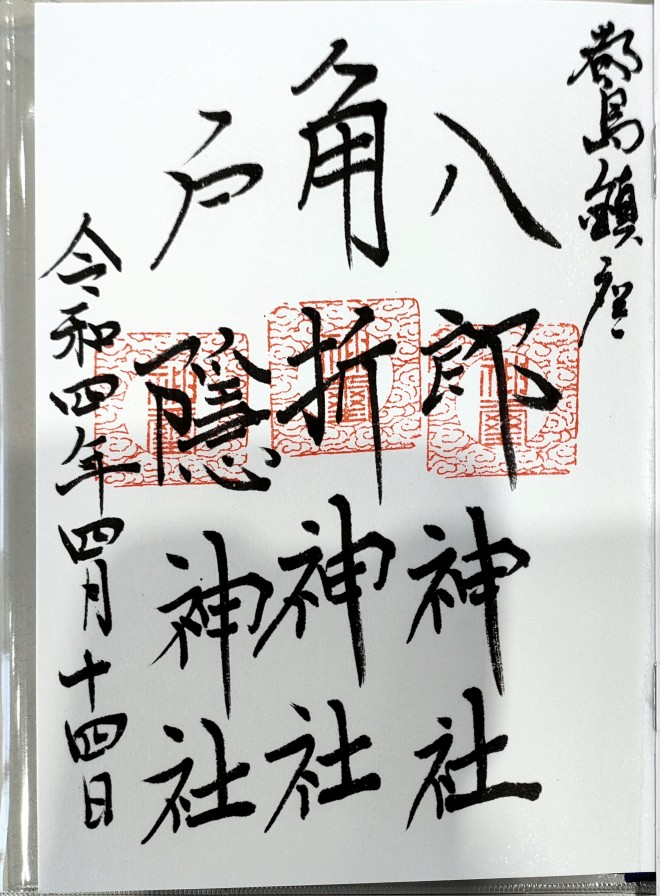 都島鎮座
八郎神社
角折神社
戸隠神社
令和四年四月十四日